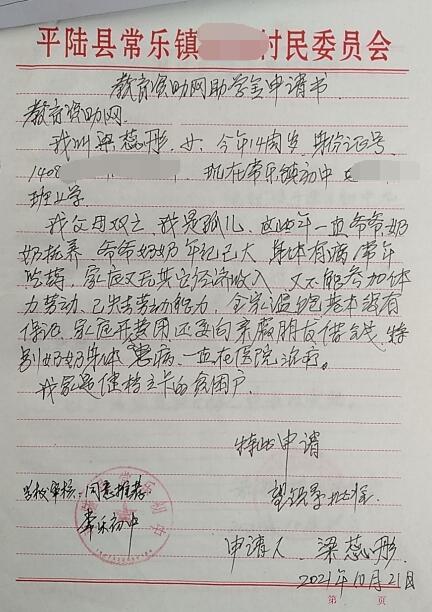 平陆县常乐镇 村民委员会
教育资助网助学金申请书
教育资助网:
我叫梁蕊彤,女,今年14周岁,身份证号
1408 现在常乐镇初中
班上学
我父母双亡,我是孤儿,这些年一直爷爷奶
奶抚养,爷爷奶奶年纪已大,身体有病,常年
吃药,家庭又无其它经济收入,又不能参加体
力劳动,已失去劳动能力,全家温饱基本没有
保证,家庭开支因还要向亲戚朋友借钱,特
别奶奶身体患病,一直在医院治疗。
我家是建档立卡的贫困户
特此申请
学校审核,同意推荐
常乐初中
望领导批准
申请人 梁蕊彤
2021年10月21日
第 页